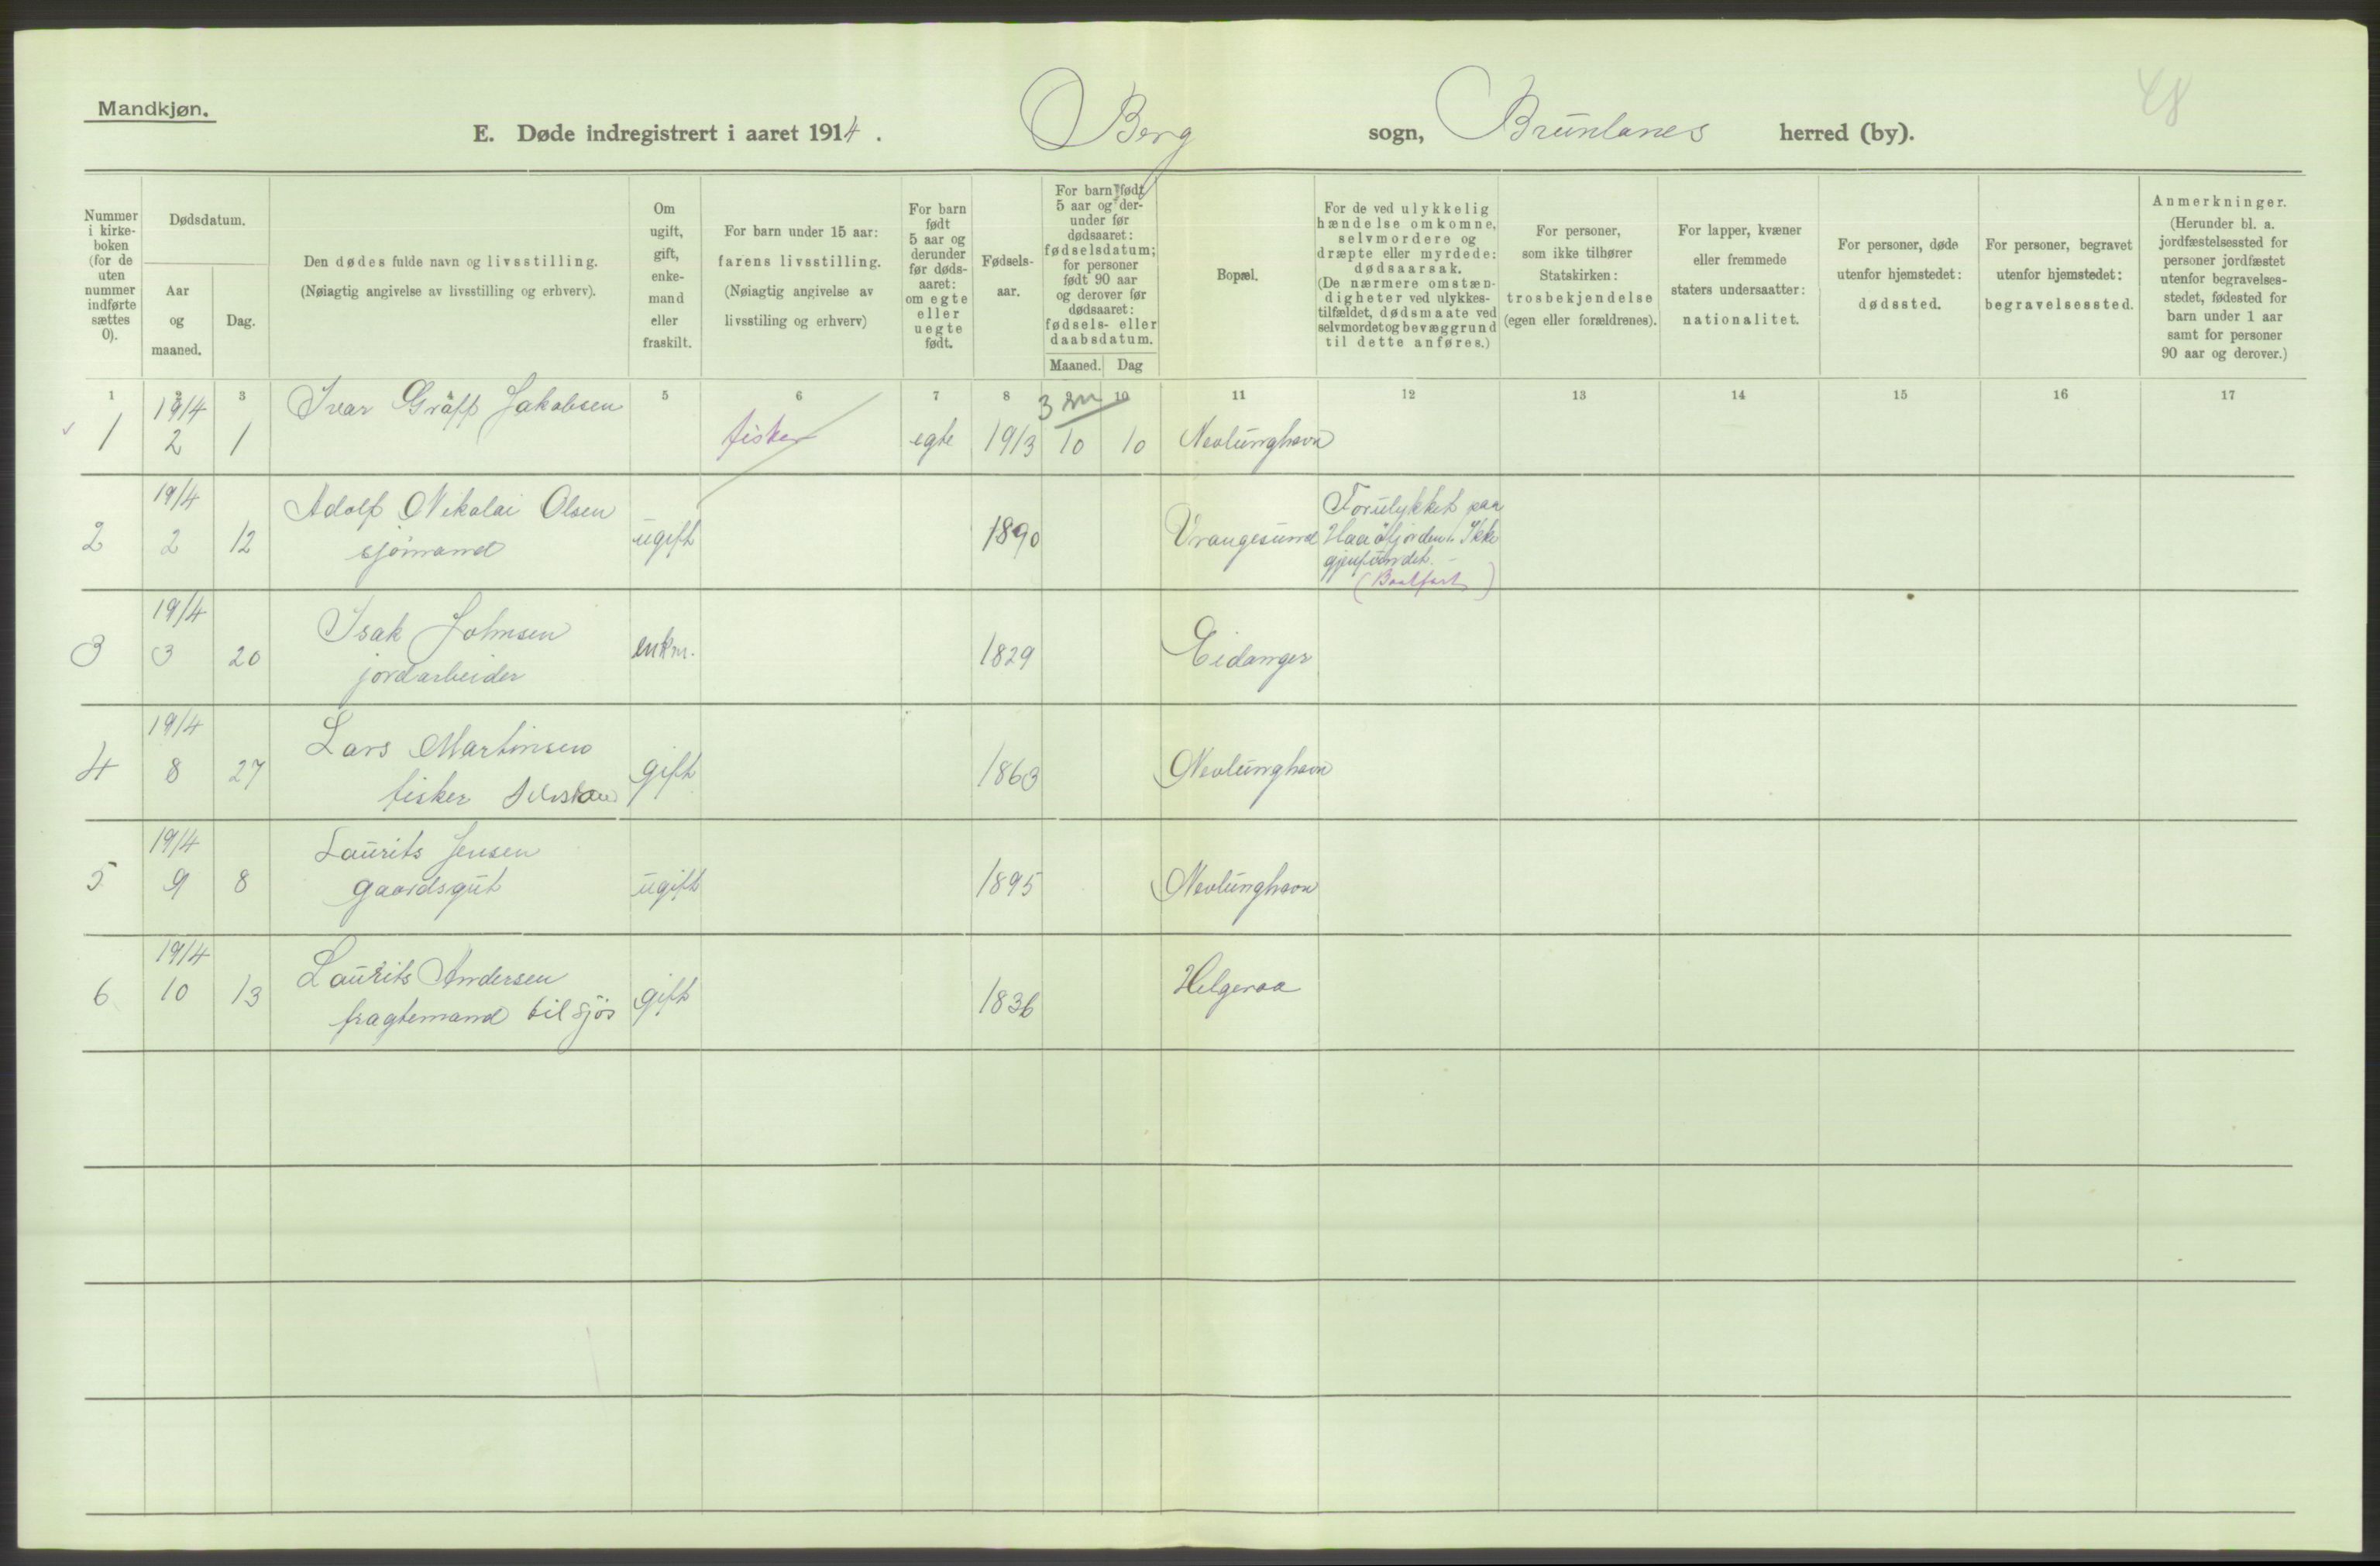 48
Mandkjøn.
E. Døde indregistrert i aaret 1914. Berg sogn, Brunlanes herred (by).
Nummer i kirkeboken (for de uten nummer indførte sættes 0).
Dødsdatum.
Aar og maaned.
Dag.
Den dødes fulde navn og livsstilling.
(Nøiagtig angivelse av livsstilling og erhverv).
Om ugift, gift, enkemand eller fraskilt.
For barn under 15 aar: farens livsstilling.
(Nøiagtig angivelse av livsstiling og erhverv)
For barn født 5 aar og derunder før dødsaaret: om egte eller uegte født.
Fødselsaar.
For barn født 5 aar og derunder før dødsaaret: fødselsdatum; for personer født 90 aar og derover før dødsaaret: fødsels- eller daabsdatum.
Maaned. Dag
Bopæl.
For de ved ulykkelig hændelse omkomne, selvmordere og dræpte eller myrdede: dødsaarsak.
(De nærmere omstændigheter ved ulykkestilfældet, dødsmaate ved selvmordet og bevæggrund til dette anføres.)
For personer, som ikke tilhører Statskirken: trosbekjendelse (egen eller forældrenes).
For lapper, kvæner eller fremmede staters undersaatter: nationalitet.
For personer, døde utenfor hjemstedet: dødssted.
For personer, begravet utenfor hjemstedet: begravelsessted.
Anmerkninger.
(Herunder bl. a. jordfæstelsessted for personer jordfæstet utenfor begravelsesstedet, fødested for barn under 1 aar samt for personer 90 aar og derover.)
1 2 3 4 5 6 7 8 9 10 11 12 13 14 15 16 17
1914 Ivar Graff Jakobsen 3 m
1 2 1 fisker egte 1913 10 10 Nevlunghavn
1914 Adolf Nikolai Olsen Forulykket paa
2 2 12 sjømand ugift 1890 Vrangesund Haaøfjorden. Ikke
gjenfundet.
(Baatfart)
1914 Isak Johnsen
3 3 20 jordarbeider enkm. 1829 Eidanger
1914 Lars Martinsen
4 8 27 fisker gift 1863 Nevlunghavn
1914 Laurits Jensen
5 9 8 gaardsgut ugift 1895 Nevlunghavn
1914 Laurits Andersen
6 10 13 fragtemand til sjøs gift 1836 Helgeroa